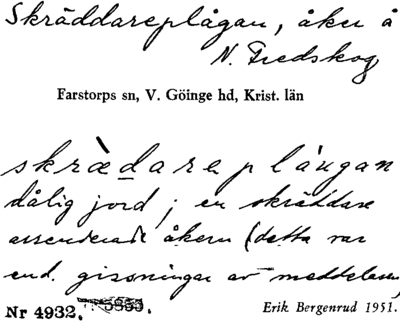 Skräddareplågan, åker å
N. Fredskog
Farstorps sn, V. Göinge hd, Krist. län
skrædareplångan
dålig jord; en skräddare
arrenderade åkern (detta var
end. gissningar av meddelaren)
Nr 4932.
Erik Bergenrud 1951.